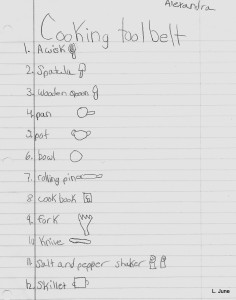 Alexandra
Cooking toolbelt
1. A wisk
2. Spatula
3. Wooden spoon
4. pan
5. pot
6. bowl
7. rolling pin
8. cook book
9. fork
10. Knive
11. Salt and pepper shaker
12. Skillet
L. June